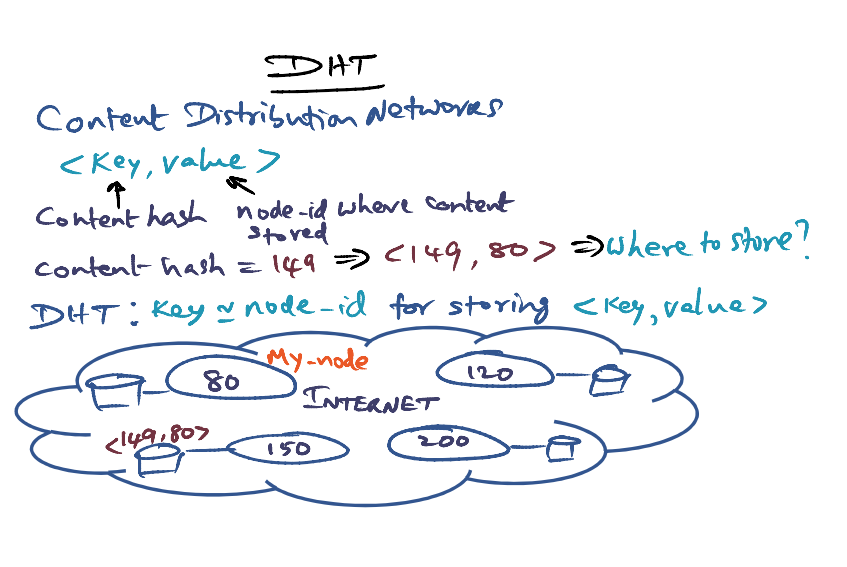 DHT
Content Distribution Networks
<Key, value>
Content hash node-id where content stored
content-hash = 149 => <149, 80> => where to store?
DHT: Key ≃ node-id for storing <Key, value>
My-node
80
120
INTERNET
<149,80>
150
200